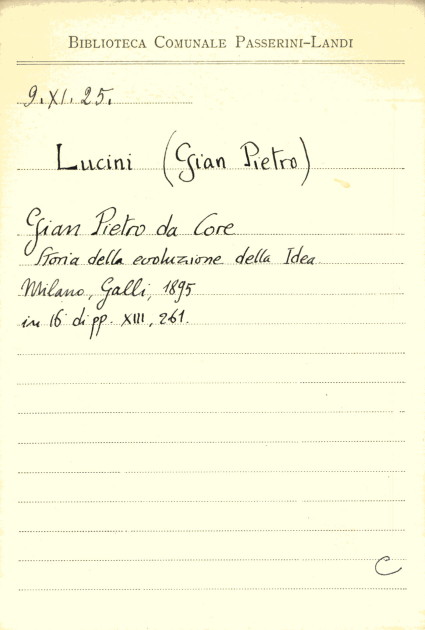 BIBLIOTECA COMUNALE PASSERINI-LANDI
9.XI.25.
Lucini (Gian Pietro)
Gian Pietro da Core
Storia della evoluzione della Idea
Milano, Galli, 1895
in 16° di pp. XIII, 261.
C